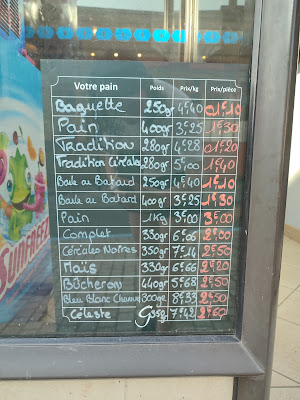 Votre pain Poids Prix/kg Prix/pièce
Baguette 250gr 4€40 1€10
Pain 400gr 3€25 1€30
Tradition 280gr 4€28 1€20
Tradition Céréales 280gr 5€00 1€40
Boule ou Batard 250gr 4€40 1€10
Boule ou Batard 400gr 3€25 1€30
Pain 1Kg 3€00 3€00
Complet 330gr 6€06 2€00
Céréales Noires 350gr 7€14 2€50
Maïs 330gr 6€66 2€20
Bûcheron 440gr 5€68 2€50
Bleu Blanc Chanvre 300gr 8€33 2€50
Céleste 350gr 7€42 2€60
SUNFREEZE